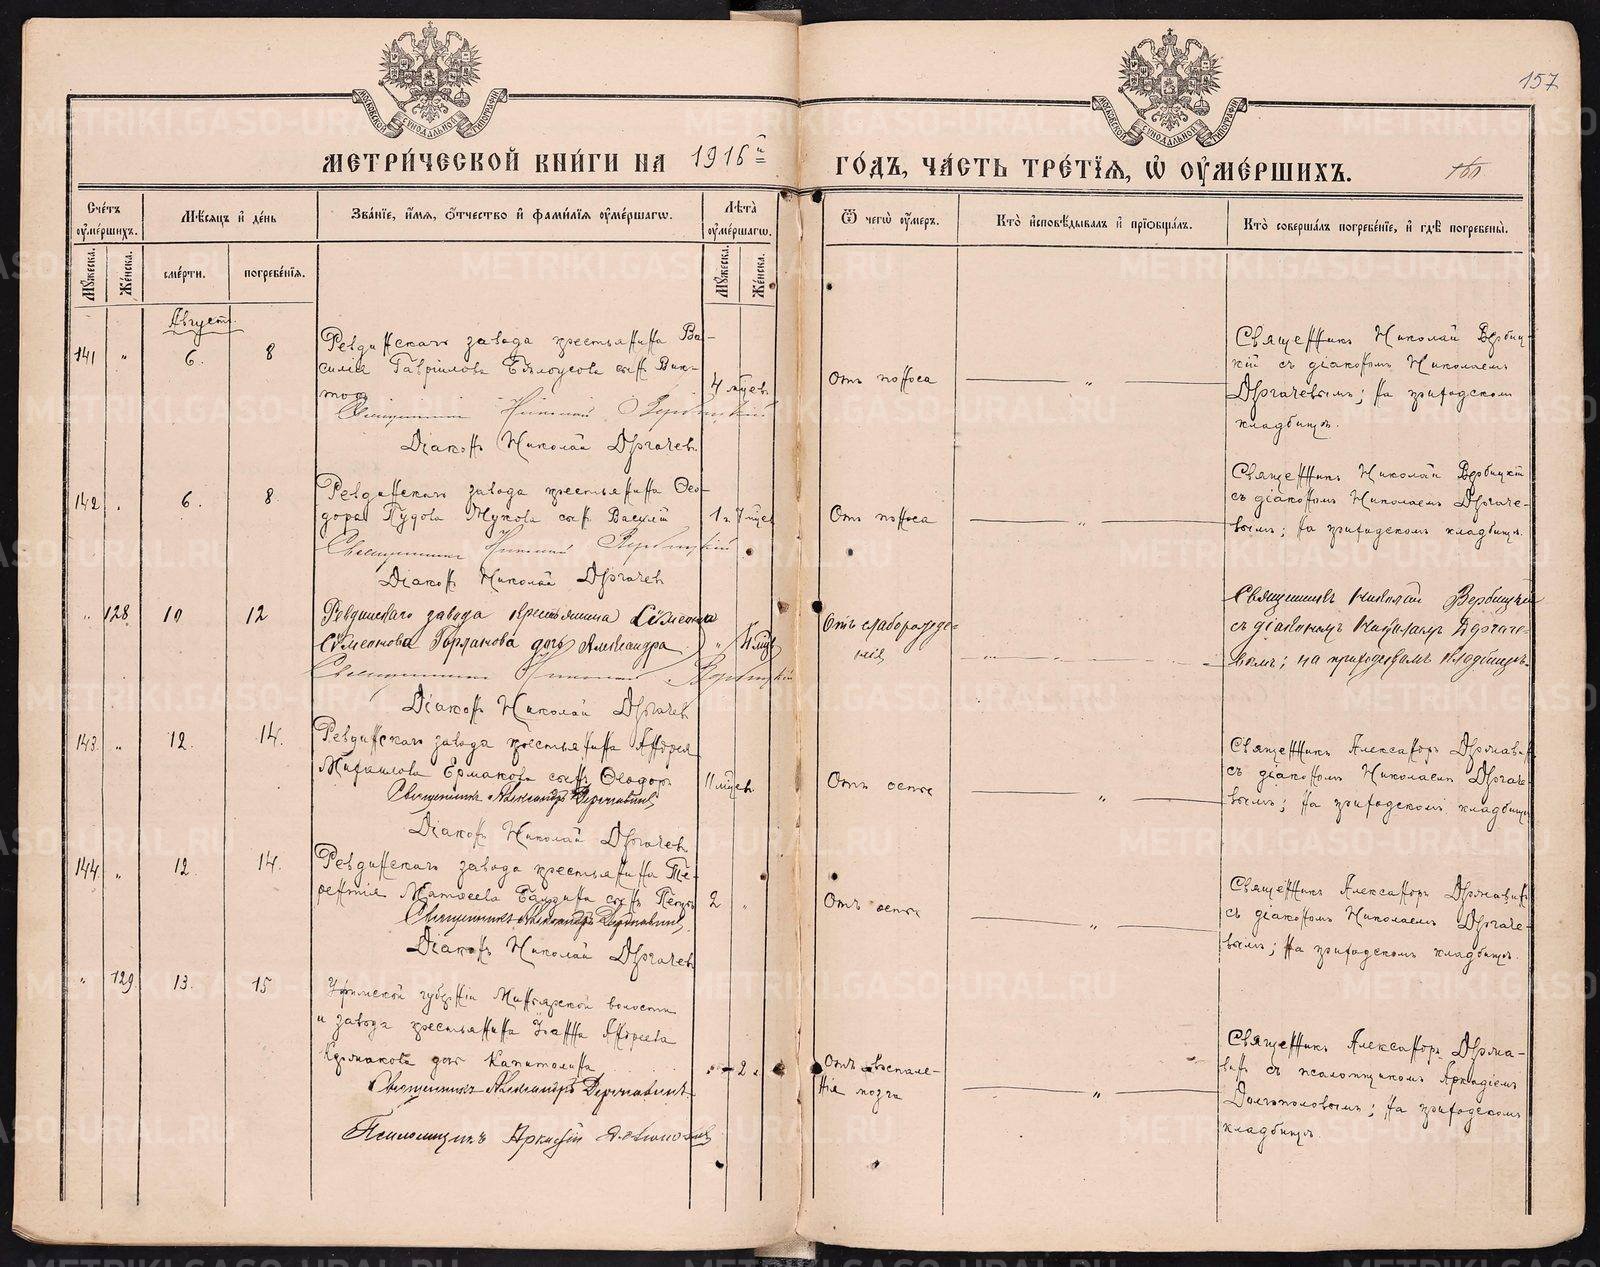 157
МЕТРИ́ЧЕСКОЙ КНИ́ГИ НА 1916й ГО́ДЪ, ЧА́СТЬ ТРЕ́ТЇЯ, Ѽ ОУМЕ́РШИХЪ.
Сче́тъ оуме́ршихъ.
Мꙋжеска.
Же́нска.
Мѣ́сяцъ и҆ де́нь
сме́рти.
погребе́нїя.
Зва́нїе, и҆́мя, о҆́тчество и҆ фами́лїя оуме́ршагѡ.
Лѣ́та оуме́ршагѡ.
Мꙋжеска.
Же́нска.
Ѿ чегѡ̀ оу҆́меръ.
Кто̀ и҆сповѣ́дывалъ и҆ прїѡбща́лъ.
Кто̀ соверша́лъ погребе́нїе, и҆ гдѣ̀ погребены̀.
Августъ
141 " 6. 8
Ревдинскаго завода крестьянина Ва-
силія Гавріилова Бѣлоусова сынъ Вик-
торъ
4 мѣсяцевъ
Священникъ Николай Вербицкій
Діаконъ Николай Дергачевъ
Отъ поноса
"
Священникъ Николай Вербиц-
кій съ діакономъ Николаемъ
Дергачевымъ; на приходскомъ
кладбищѣ.
142 " 6. 8
Ревдинскаго завода крестьянина Ѳео-
дора Пудова Жукова сынъ Василій
1 г. 7 мѣсяц
Священникъ Николай Вербицкій
Діаконъ Николай Дергачевъ
Отъ поноса
"
Священникъ Николай Вербицкій
съ діакономъ Николаемъ Дергаче-
вымъ; на приходскомъ кладбищѣ.
" 128 10 12
Ревдинскаго завода крестьянина Сѵмеона
Сѵмеонова Горланова дочь Александра
" 4 мѣс
Священникъ Николай Вербицкій
Діаконъ Николай Дергачевъ
Отъ слаборожде-
нія
Священникъ Николай Вербицкій
съ діакономъ Николаемъ Дергаче-
вымъ; на приходскомъ кладбищѣ.
143. " 12. 14.
Ревдинскаго завода крестьянина Андрея
Михаилова Ермакова сынъ Ѳеодоръ
11 мѣсяцев
Священникъ Александръ Державинъ
Діаконъ Николай Дергачевъ
Отъ оспы
"
Священникъ Александръ Державинъ
съ діакономъ Николаемъ Дергаче-
вымъ; на приходскомъ кладбищѣ
144. " 12. 14.
Ревдинскаго завода крестьянина Те-
рентія Матѳеева сынъ Петръ
2 "
Священникъ Александръ Державинъ
Діаконъ Николай Дергачевъ
Отъ оспы
"
Священникъ Александръ Державинъ
съ діакономъ Николаемъ Дергаче-
вымъ; на приходскомъ кладбищѣ.
" 129 13. 15
Уфимской губерніи Миньярской волости
и завода крестьянина Іоанна Андреева
дочь Капитолина
" 2 г.
Священникъ Александръ Державинъ
Псаломщикъ Аркадій Долгополовъ
Отъ воспале-
нія мозга
"
Священникъ Александръ Держа-
винъ съ псаломщикомъ Аркадіемъ
Долгополовымъ; на приходскомъ
кладбищѣ.
METRIKI.GASO-URAL.RU